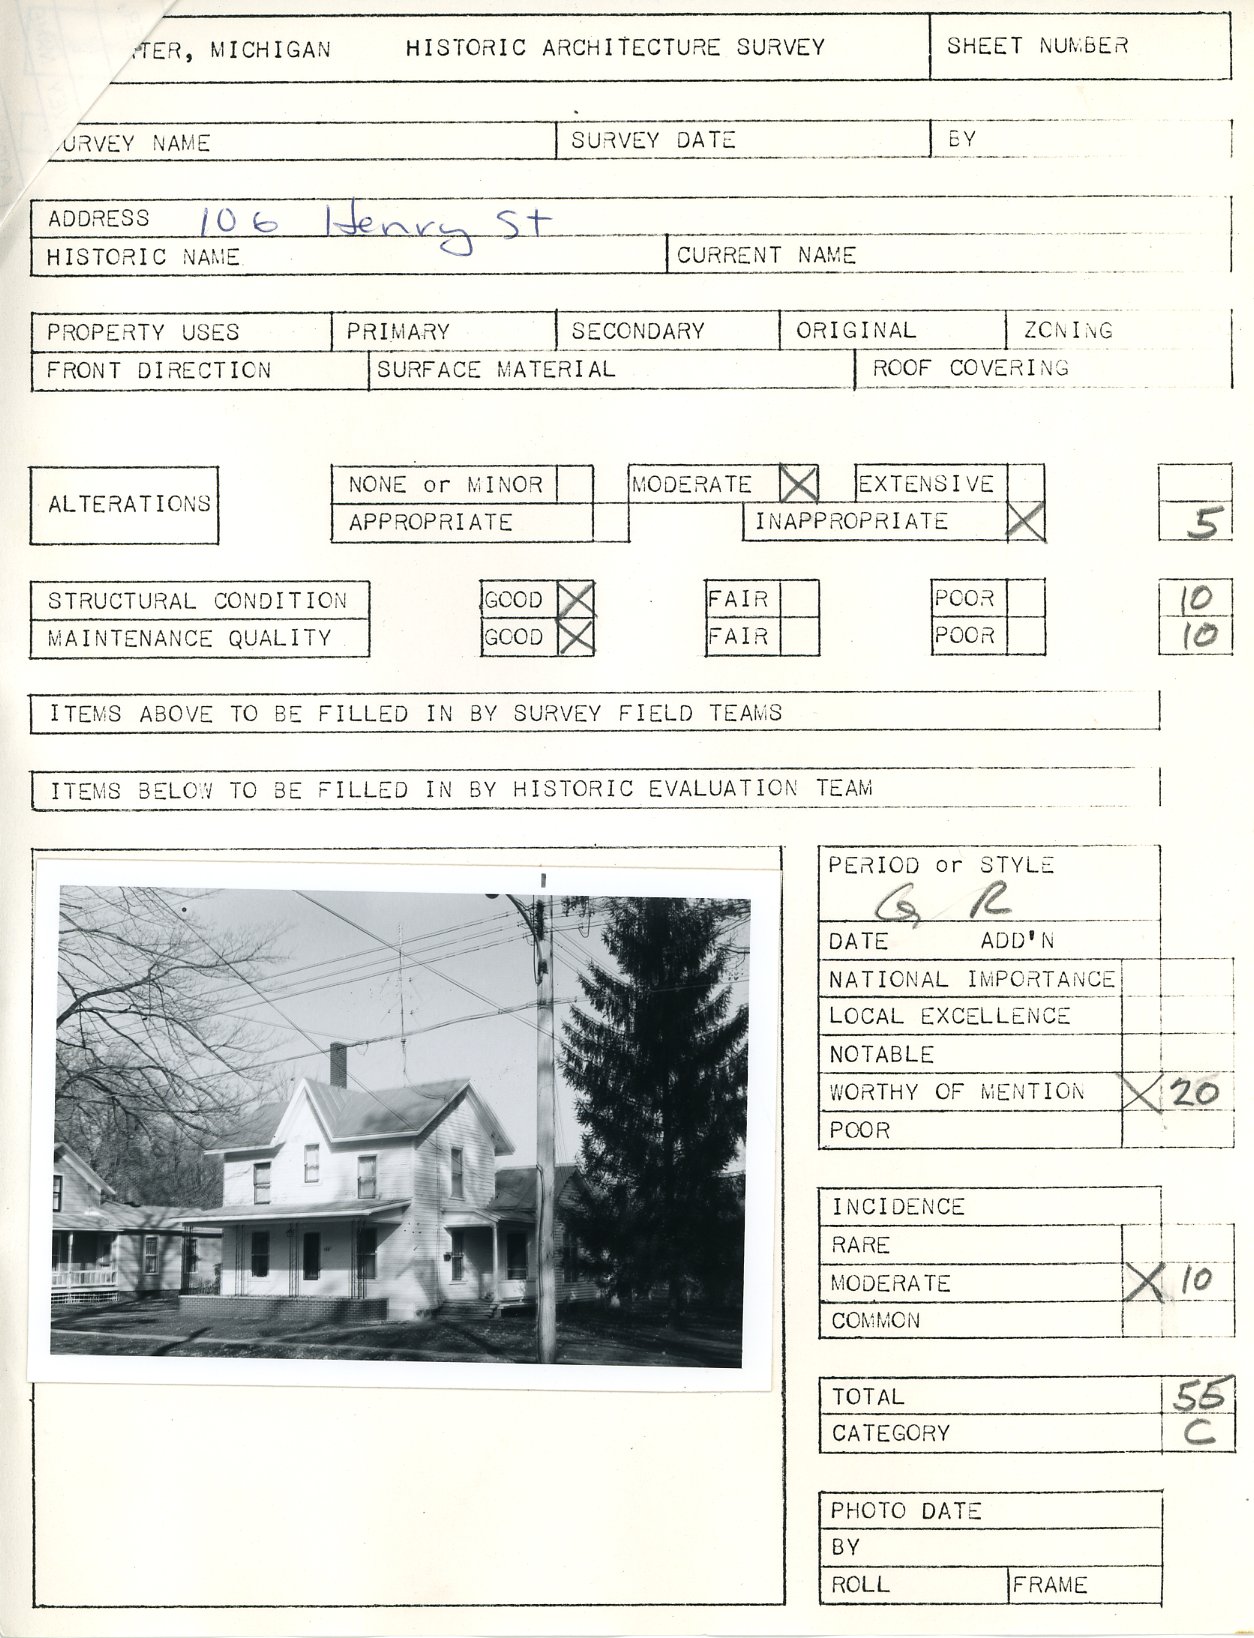 TER, MICHIGAN HISTORIC ARCHITECTURE SURVEY SHEET NUMBER
URVEY NAME SURVEY DATE BY
ADDRESS 106 Henry St
HISTORIC NAME CURRENT NAME
PROPERTY USES PRIMARY SECONDARY ORIGINAL ZONING
FRONT DIRECTION SURFACE MATERIAL ROOF COVERING
ALTERATIONS NONE or MINOR MODERATE X EXTENSIVE
APPROPRIATE INAPPROPRIATE X 5
STRUCTURAL CONDITION GOOD X FAIR POOR 10
MAINTENANCE QUALITY GOOD X FAIR POOR 10
ITEMS ABOVE TO BE FILLED IN BY SURVEY FIELD TEAMS
ITEMS BELOW TO BE FILLED IN BY HISTORIC EVALUATION TEAM
PERIOD or STYLE
G R
DATE ADD'N
NATIONAL IMPORTANCE
LOCAL EXCELLENCE
NOTABLE
WORTHY OF MENTION X 20
POOR
INCIDENCE
RARE
MODERATE X 10
COMMON
TOTAL 55
CATEGORY C
PHOTO DATE
BY
ROLL FRAME